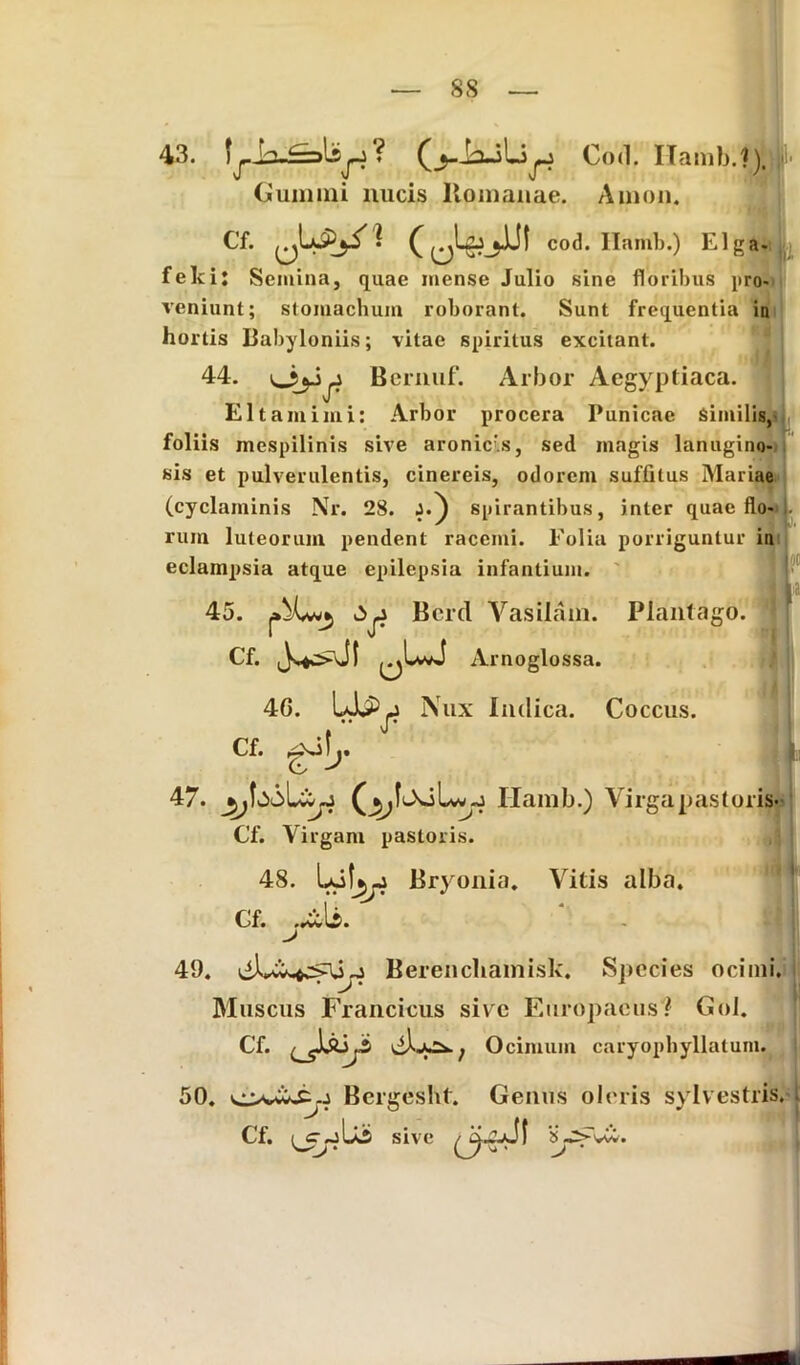 — 88 —
43. Cod. Hamb.?).
Gummi nucis Romanae. Amon.
Cf. cod. Hamb.) Elga-
feki: Semina, quae mense Julio sine floribus pro-
veniunt; stomachum roborant. Sunt frequentia in
hortis Babyloniis; vitae spiritus excitant.
44. برنوف Bernuf. Arbor Aegyptiaca.
Eltamimi: Arbor procera Punicae similis,
foliis mespilinis sive aronicis, sed magis lanugino-
sis et pulverulentis, cinereis, odorem suffitus Mariae
(cyclaminis Nr. 28. د.) spirantibus, inter quae flo-
rum luteorum pendent racemi. Folia porriguntur in
eclampsia atque epilepsia infantium.
45. برد وسلام Berd Vasilâm. Plantago.
Cf. لسان الحمل Arnoglossa.
46. Nux Indica. Coccus.
Cf. رانج.
47. برشاندارو (برساندارو Hamb.) Virga pastoris.
Cf. Virgam pastoris.
48. بروانيا Bryonia. Vitis alba.
Cf. فاشر.
49. برنجمشك Berenchamisk. Species ocimi.
Muscus Francicus sive Europaeus? Gol.
Cf. حبك قرنفلى Ocimum caryophyllatum.
50. برغشت Bergesht. Genus oleris sylvestris.
Cf. قنابرى sive